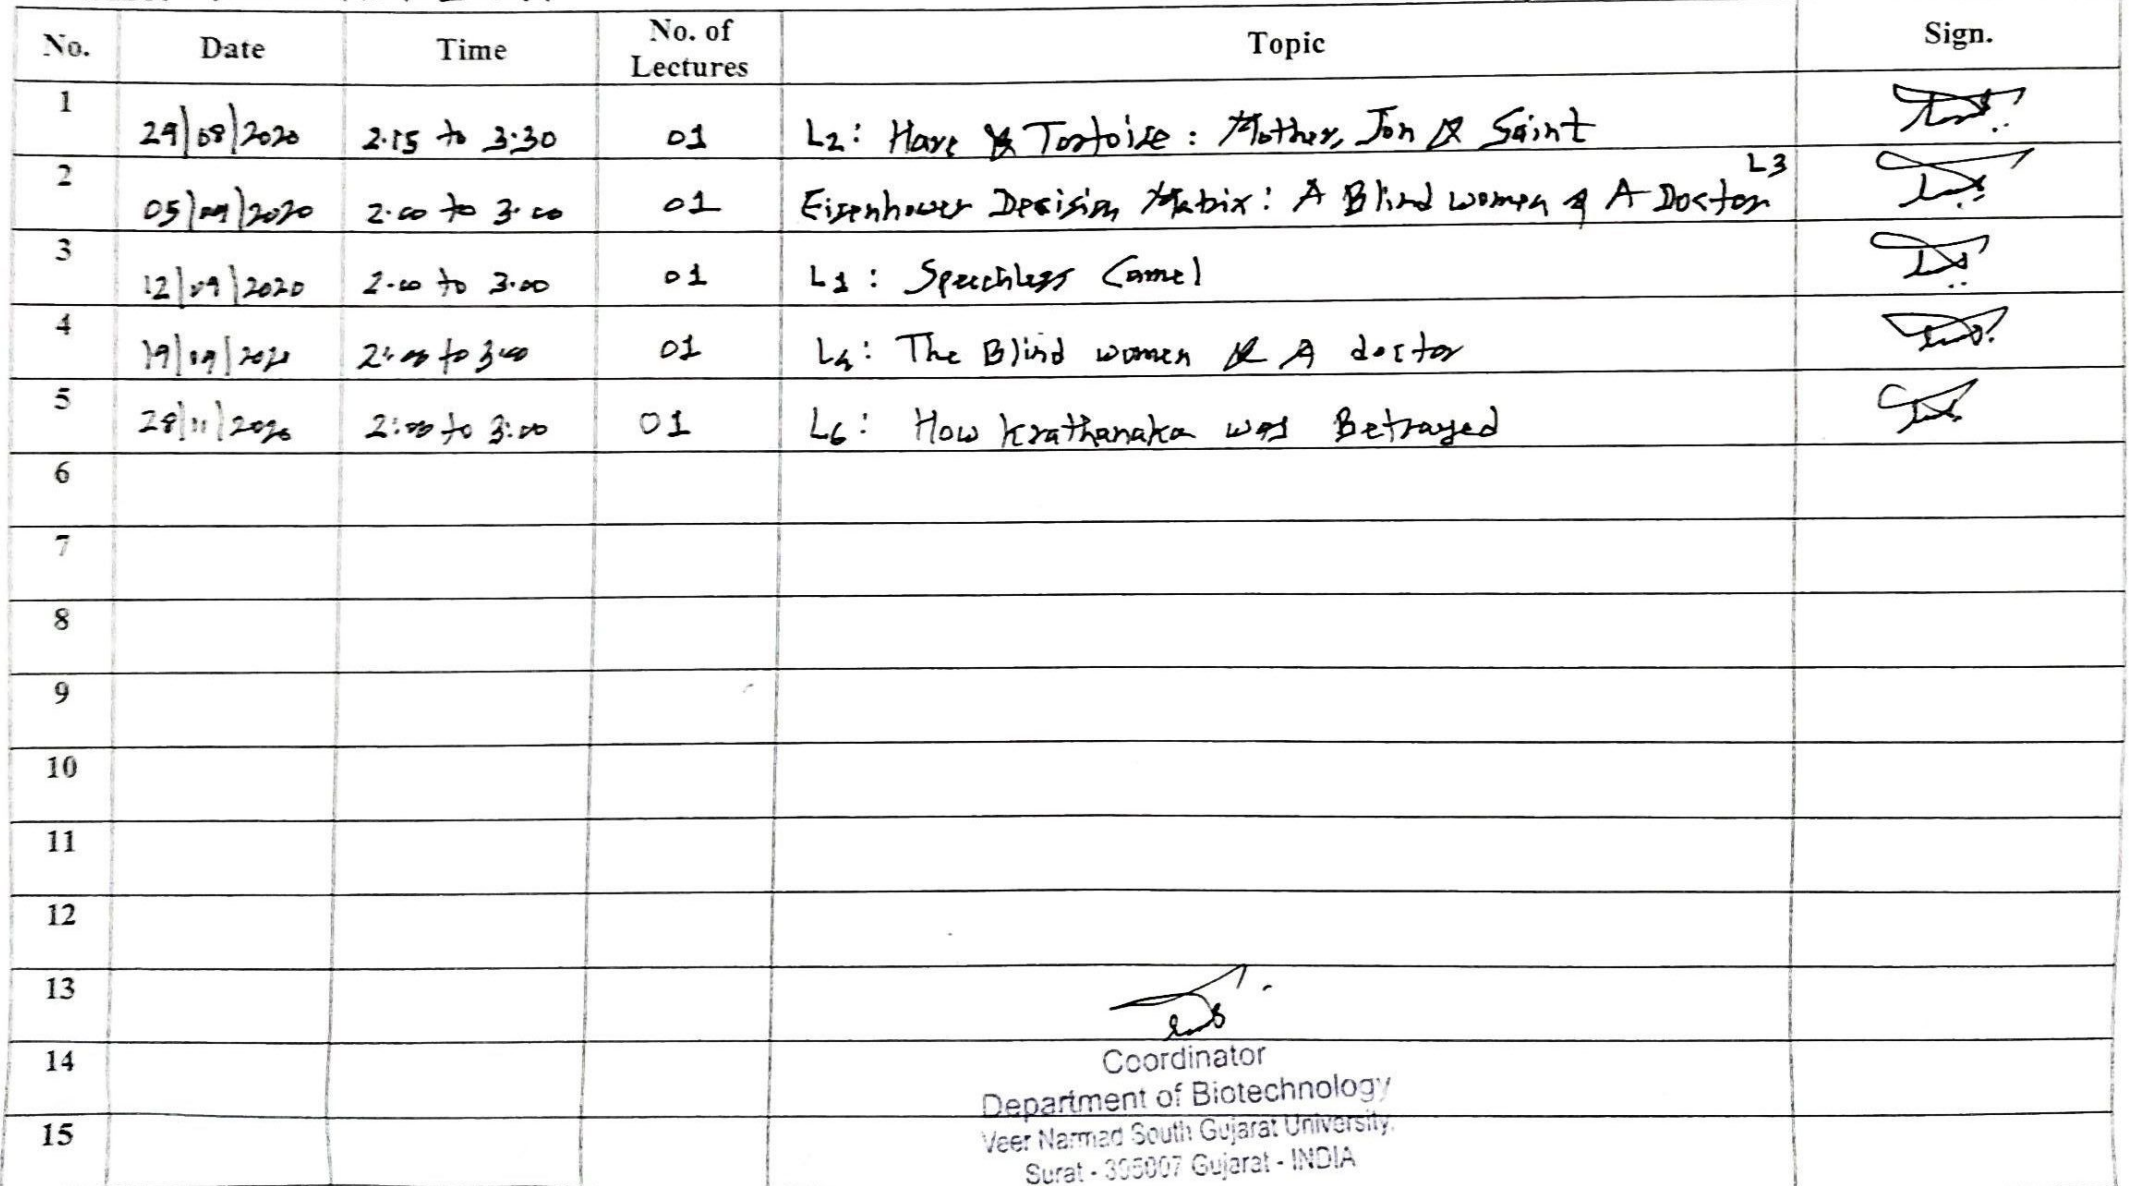 No. Date Time No. of Lectures Topic Sign.
1 29/08/2020 2.15 to 3:30 01 L2: Hare & Tortoise: Mother, Son & Saint
2 05/09/2020 2.00 to 3.00 01 Eisenhower Decision Matrix: A Blind women & A Doctor L3
3 12/09/2020 2.00 to 3.00 01 L1: Speechless Camel
4 19/09/2020 2:00 to 3:00 01 L4: The Blind women & A doctor
5 28/11/2020 2:00 to 3:00 01 L6: How Krathanaka was Betrayed
6
7
8
9
10
11
12
13
14
15
Coordinator
Department of Biotechnology
Veer Narmad South Gujarat University,
Surat - 395007 Gujarat - INDIA